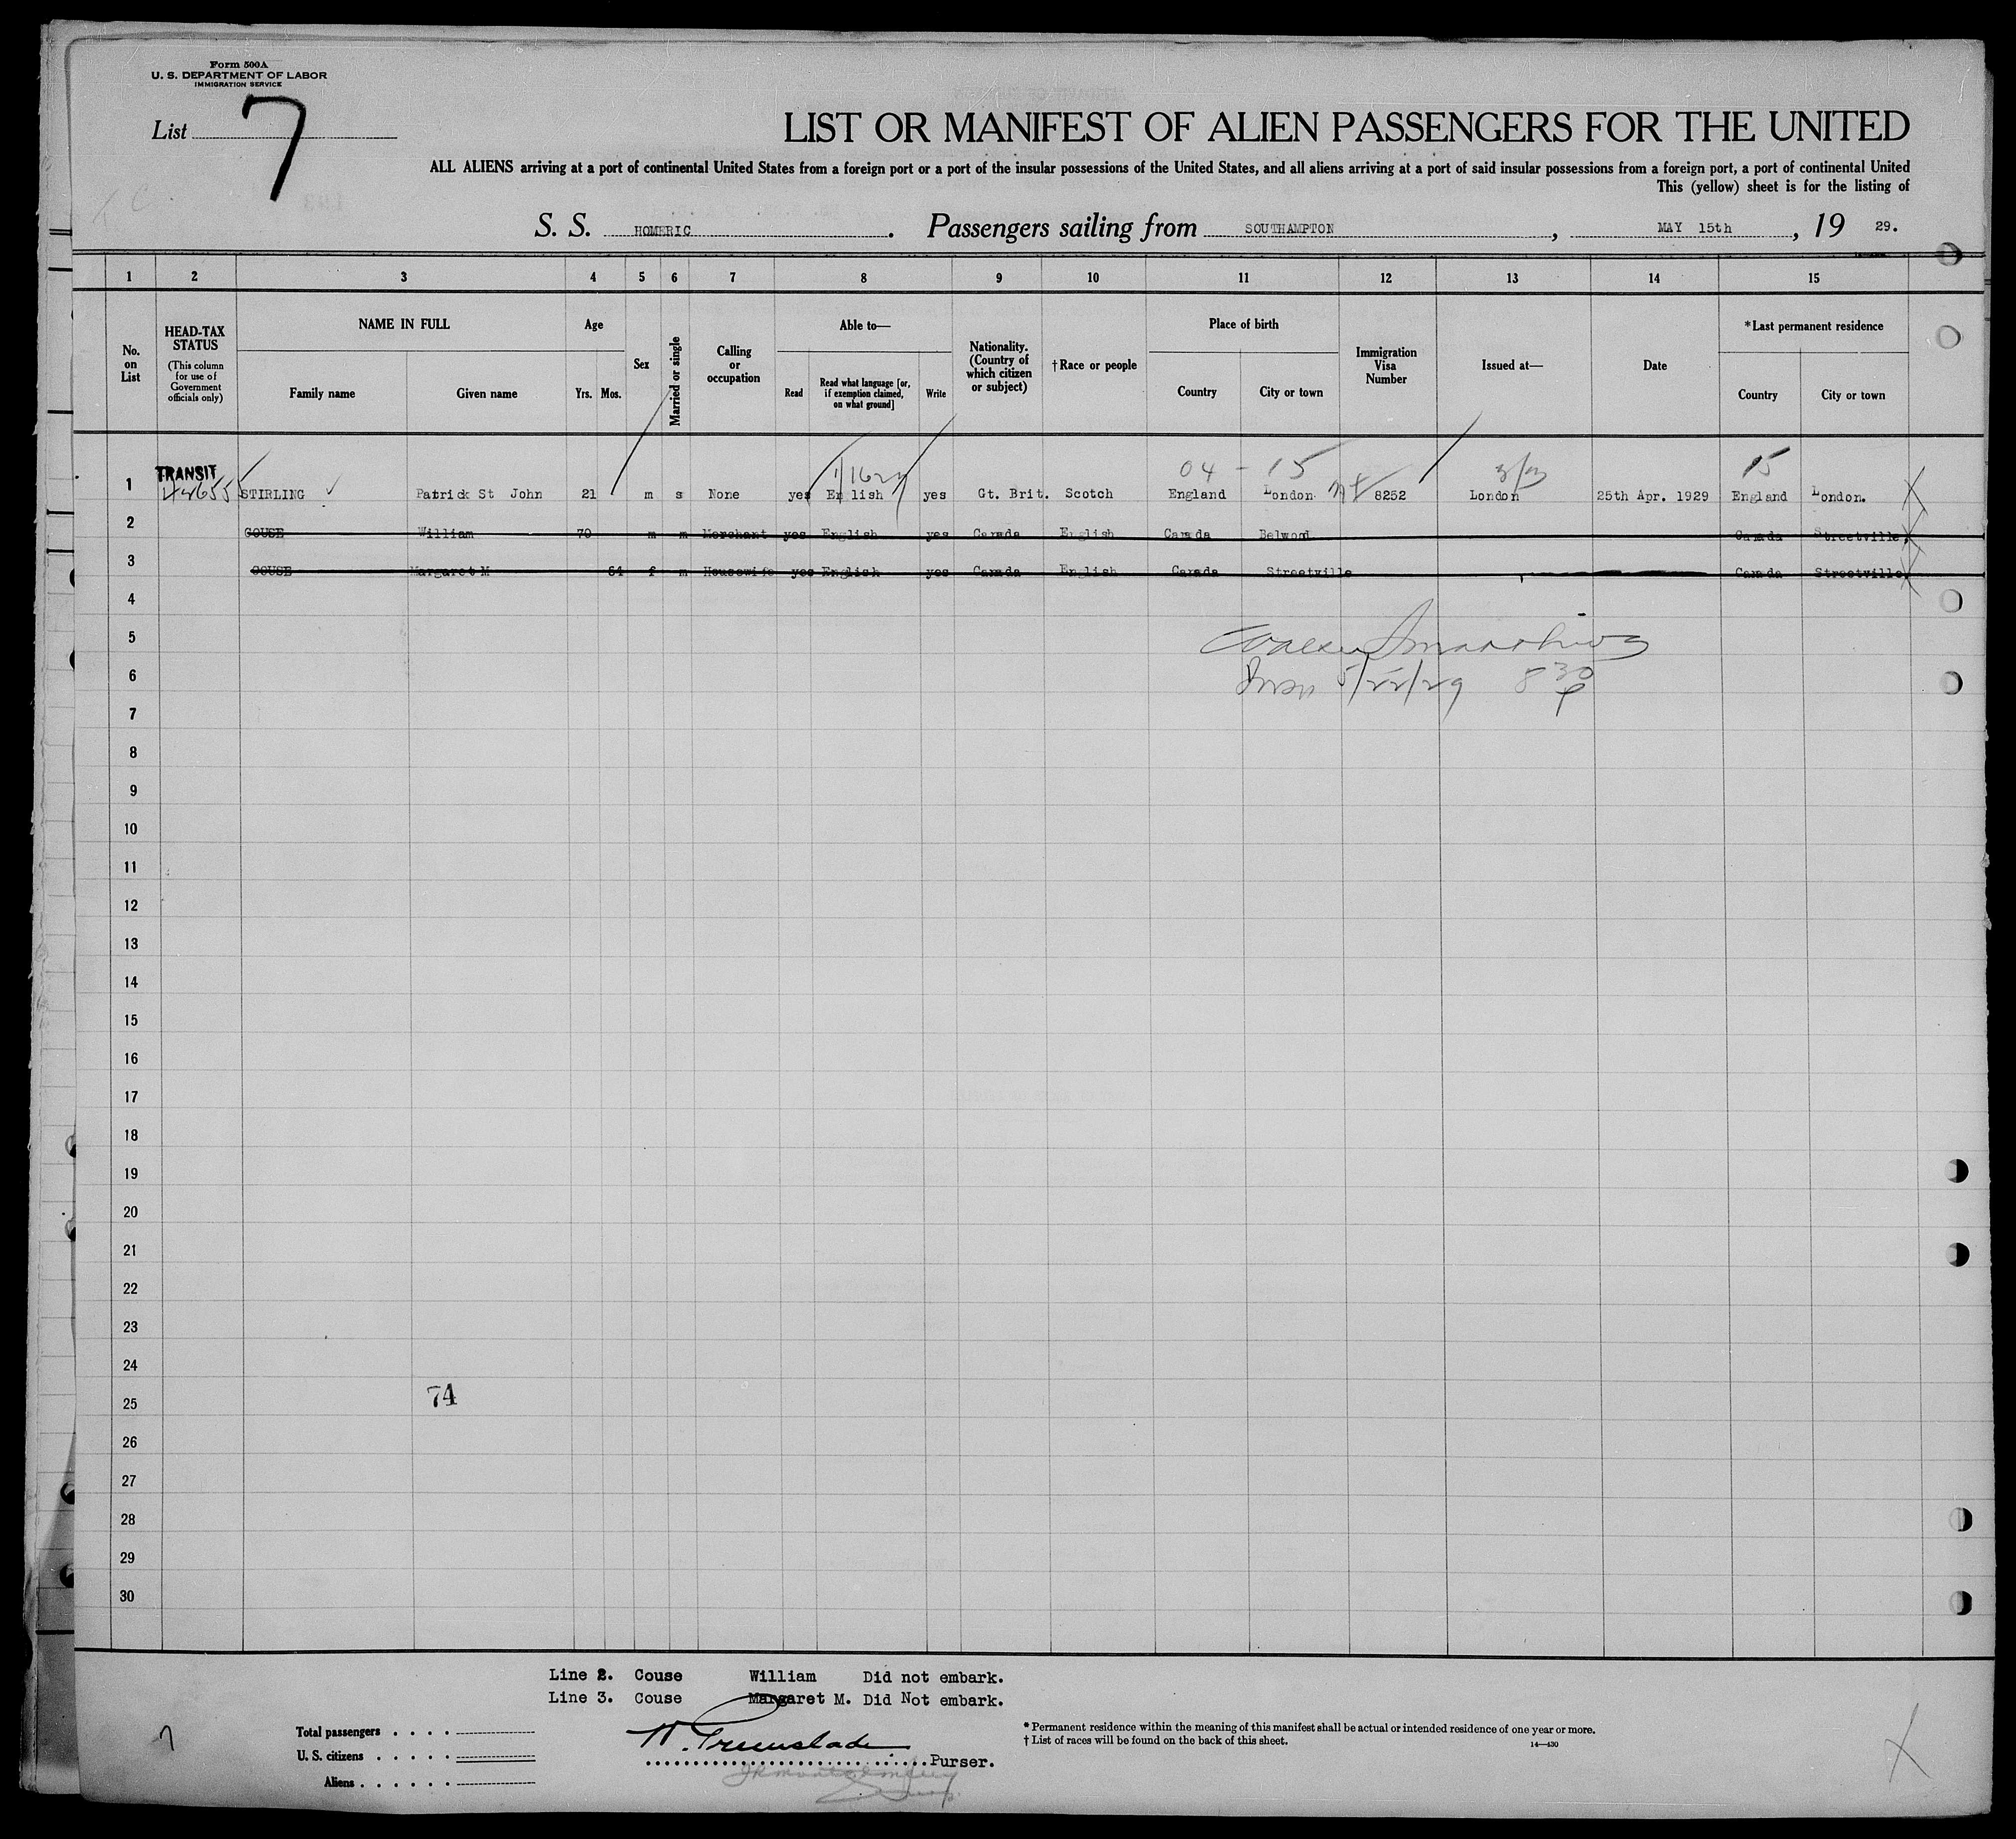 Form 500A
U. S. DEPARTMENT OF LABOR
IMMIGRATION SERVICE
List 7
LIST OR MANIFEST OF ALIEN PASSENGERS FOR THE UNITED
ALL ALIENS arriving at a port of continental United States from a foreign port or a port of the insular possessions of the United States, and all aliens arriving at a port of said insular possessions from a foreign port, a port of continental United
This (yellow) sheet is for the listing of
S. S. HOMERIC. Passengers sailing from SOUTHAMPTON, MAY 15th, 19 29.
1 2 3 4 5 6 7 8 9 10 11 12 13 14 15
No. on List
HEAD-TAX STATUS
(This column for use of Government officials only)
NAME IN FULL
Family name Given name
Age
Yrs. Mos.
Sex
Married or single
Calling or occupation
Able to—
Read
Read what language [or, if exemption claimed, on what ground]
Write
Nationality. (Country of which citizen or subject)
†Race or people
Place of birth
Country City or town
Immigration Visa Number
Issued at—
Date
*Last permanent residence
Country City or town
04 - 15 3/3 15
1 TRANSIT STIRLING Patrick St John 21 m s None yes En lish yes Gt. Brit. Scotch England London 8252 London 25th Apr. 1929 England London.
2 COUSE William 70 m m Merchant yes English yes Canada English Canada Belwood Canada Streetville
3 COUSE Margaret M 64 f m Housewife yes English yes Canada English Canada Streetville Canada Streetville
4
5
6 5/22/29 8 30 P
7
8
9
10
11
12
13
14
15
16
17
18
19
20
21
22
23
24
25 74
26
27
28
29
30
Line 2. Couse William Did not embark.
Line 3. Couse Margaret M. Did Not embark.
7
Total passengers
U. S. citizens
Aliens
Purser.
* Permanent residence within the meaning of this manifest shall be actual or intended residence of one year or more.
† List of races will be found on the back of this sheet.
14—430